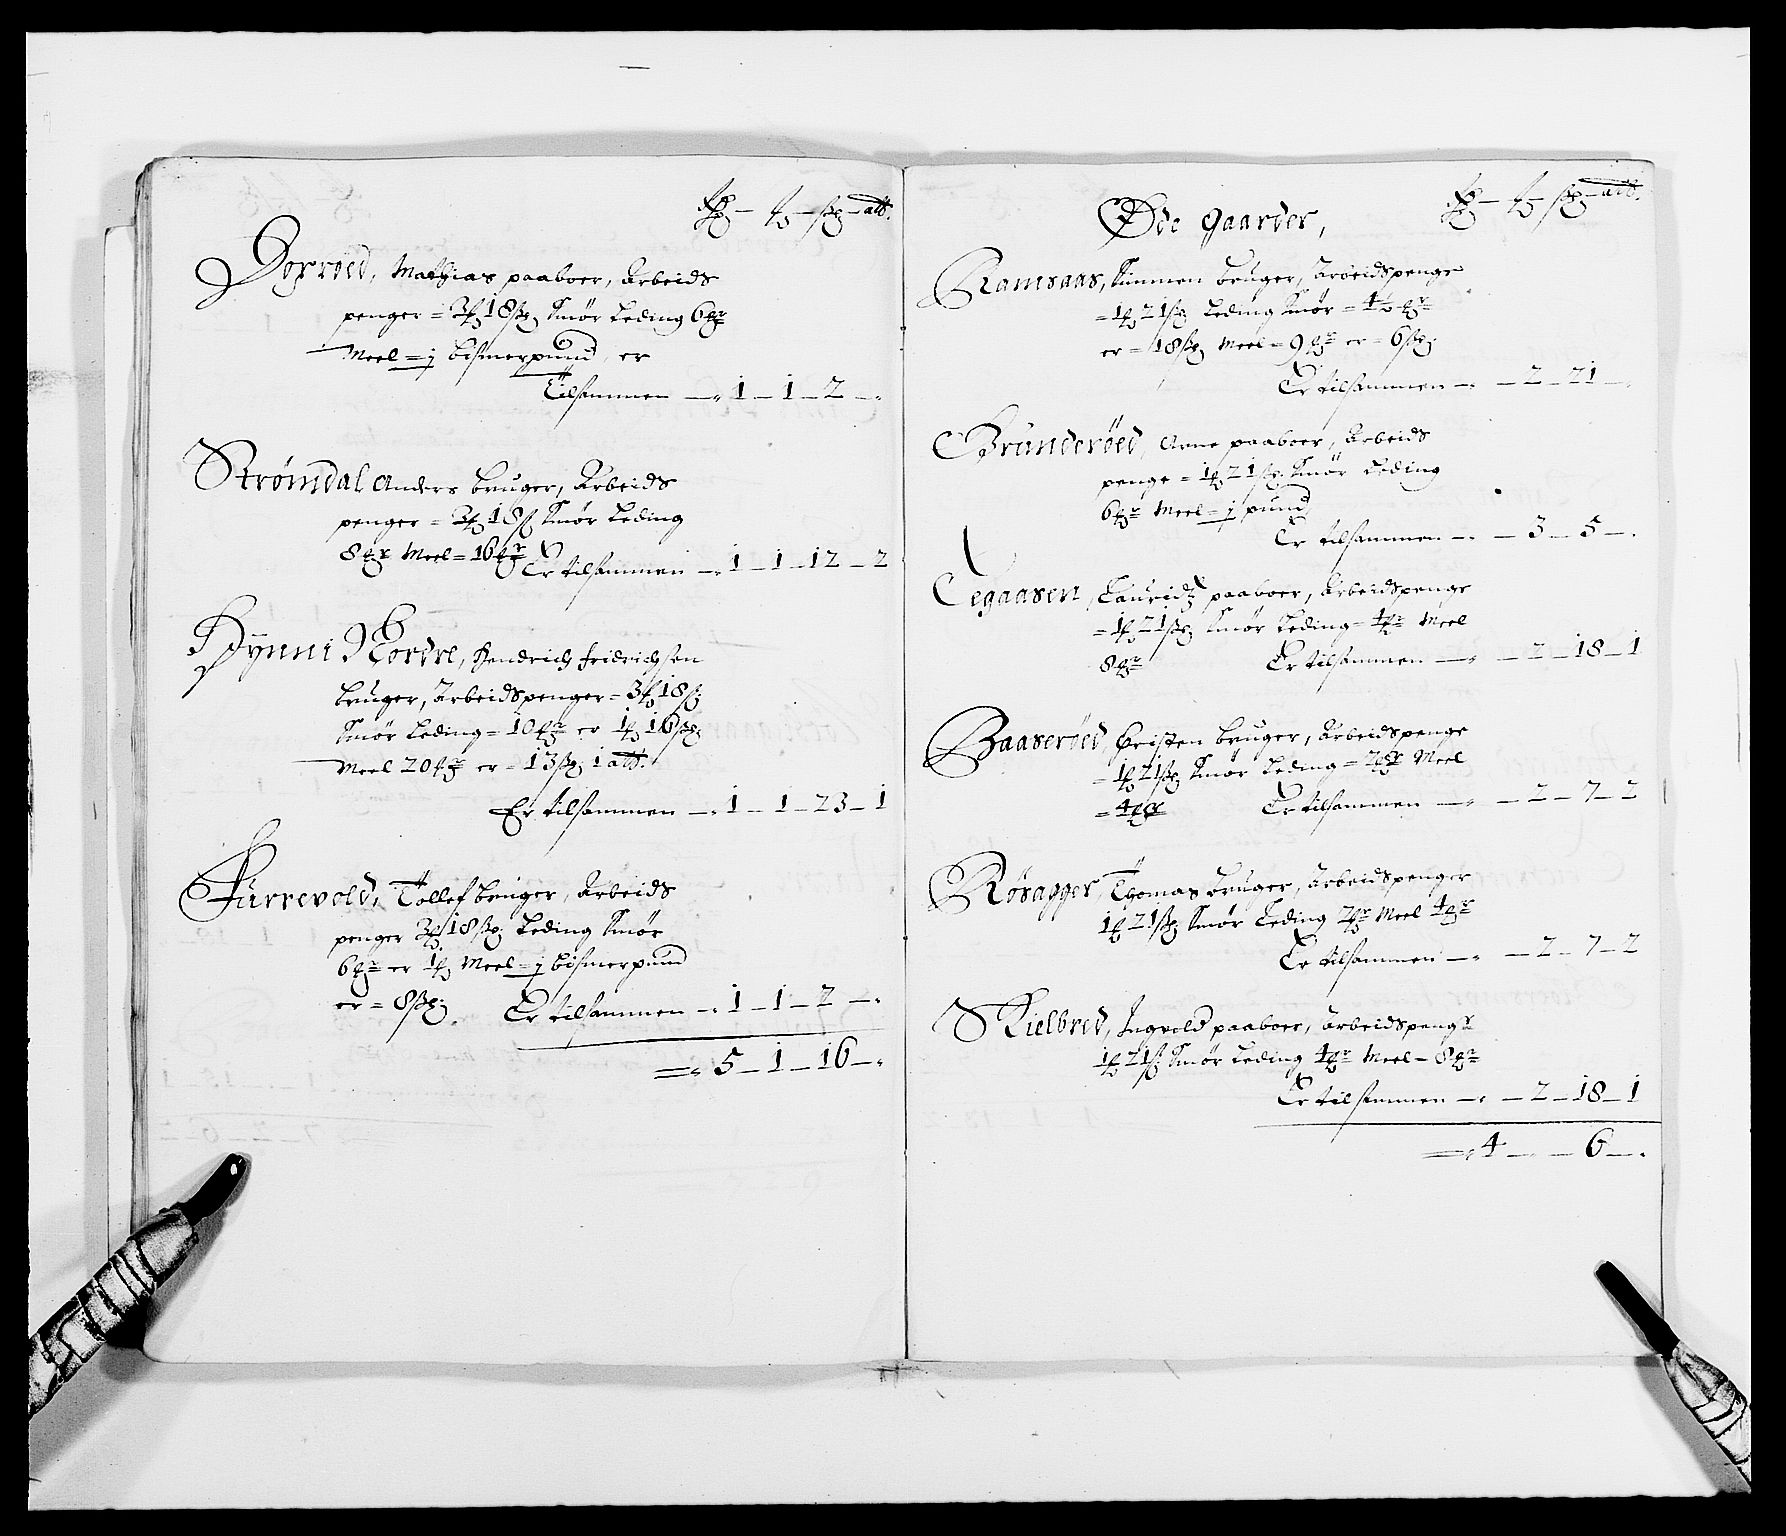 Rdr — ƒ — ß — alb.
Dorröed, Mathias paaboer, Arbeids
penger = 3ƒ 18ß Smör Leding 6 ℔r
Meel = j bismerpund, er
Tilsammen — 1 — 1 — 2 —
Strömdal Anders bruger, Arbeids
penger = 3ƒ 18ß Smör Leding
8 ℔r Meel = 16 ℔r Er tilsammen — 1 — 1 — 12 — 2
Nordre, Hendrich fridrichsen
bruger, Arbeidspenger = 3ƒ 18ß
Smör Leding = 10 ℔r er 1ƒ 16ß
Meel 20 ℔r er = 13ß 1 alb.
Er tilsammen — 1 — 1 — 23 — 1
Furrevold, Tollef bruger, Arbeids
penger 3ƒ 18ß Leding Smör
6 ℔r er 1ƒ Meel = j bismerpund
er = 8ß Er tilsammen — 1 — 1 — 2 —
5 — 1 — 16 —
Rdr — ƒ — ß — alb.
Öde gaarder,
Ramsaas, Simmen bruger, Arbeidspenge
= 1ƒ 21ß Leding Smör = 4½ ℔r
er = 18ß Meel = 9 ℔r er = 6ß
Er tilsammen — — 2 — 21 —
Brunderöed, Anne paaboer, Arbeids
penge = 1ƒ 21ß Smör Leding
6 ℔r Meel = j pund
Er tilsammen — — 3 — 5 —
Tegaasen, Lauridtz paaboer, Arbeidspenge
= 1ƒ 21ß Smör Leding = 4 ℔r Meel
8 ℔r Er tilsammen — — 2 — 18 — 1
Baaseröed, Christen bruger, Arbeidspenge
= 1ƒ 21ß Smör Leding = 2 ℔r Meel
= 4 ℔r Er tilsammen — — 2 — 7 — 2
Rösagger, Thomas bruger, Arbeidspenger
1ƒ 21ß Smör Leding 2 ℔r Meel 4 ℔r
Er tilsammen — — 2 — 7 — 2
Skielbred, Ingvold paaboer, Arbeidspengr
1ƒ 21ß Smör Leding 4 ℔r Meel — 8 ℔r
Er tilsammen — — 2 — 18 — 1
4 — — 6 —